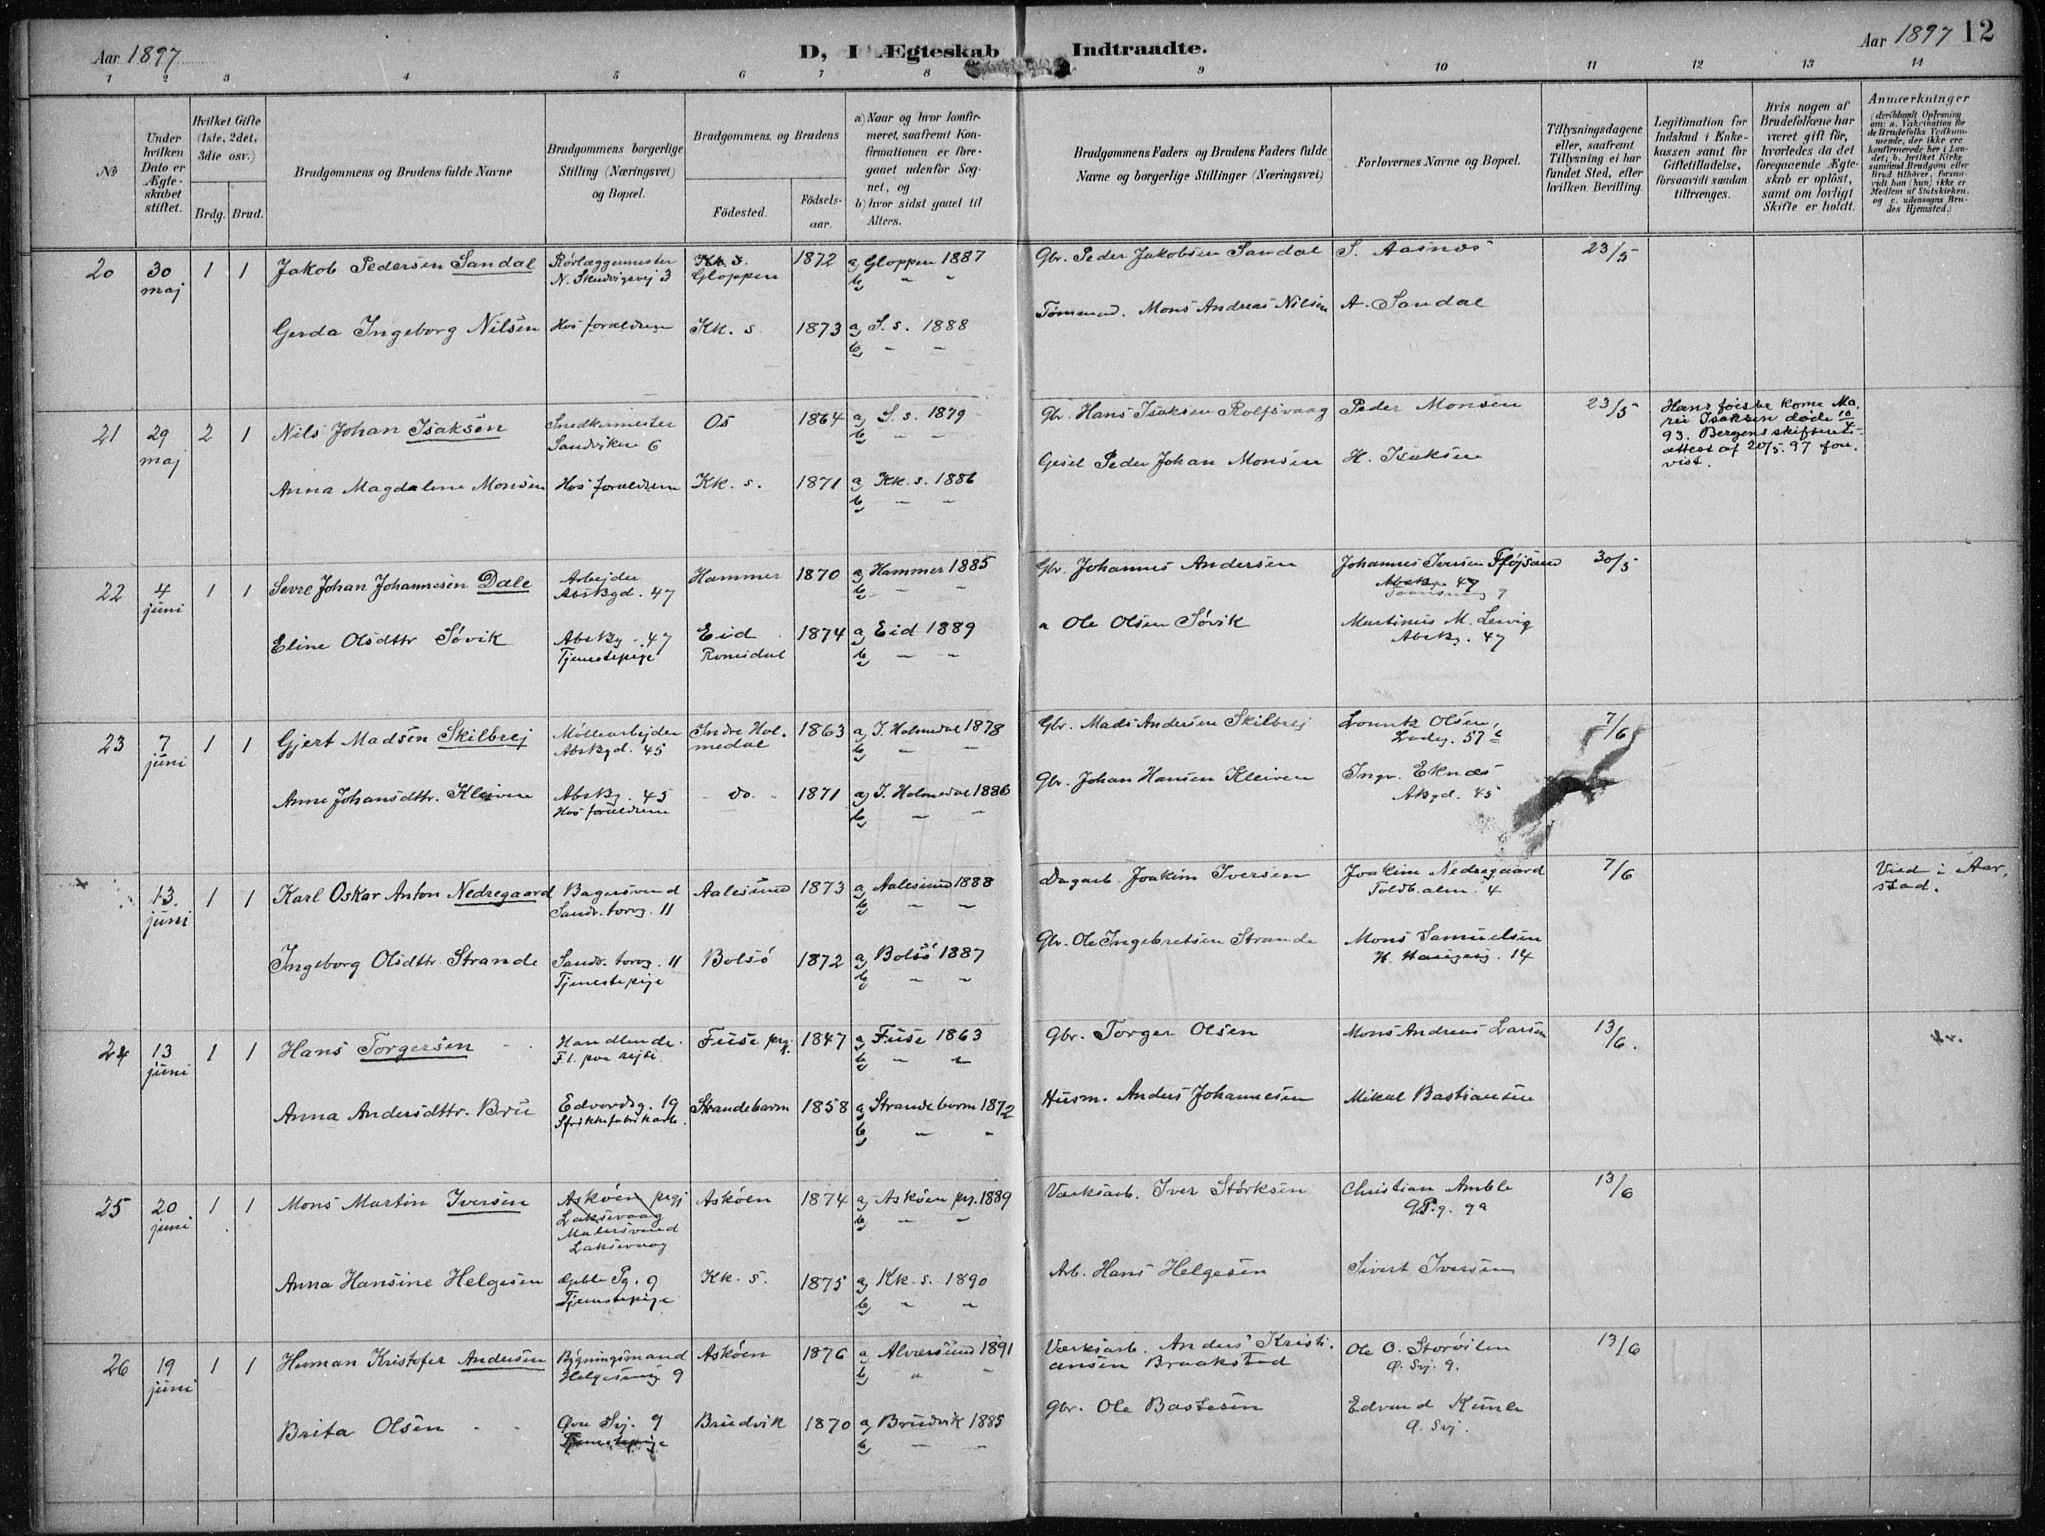 Aar 1897
D, I Ægteskab Indtraadte.
Aar 1897 12
1 2 3 4 5 6 7 8 9 10 11 12 13 14
No
Under hvilken Dato er Ægteskabet stiftet.
Hvilket Gifte (1ste, 2det, 3die osv.)
Brdg. Brud.
Brudgommens og Brudens fulde Navne
Brudgommens borgerlige Stilling (Næringsvei) og Bopæl.
Brudgommens og Brudens
Fødested.
Fødselsaar.
a) Naar og hvor konfirmeret, saafremt Konfirmationen er foregaaet udenfor Sognet, og
b) hvor sidst gaaet til Alters.
Brudgommens Faders og Brudens Faders fulde Navne og borgerlige Stillinger (Næringsvei)
Forlovernes Navne og Bopæl.
Tillysningsdagene eller, saafremt Tillysning ei har fundet Sted, efter hvilken Bevilling.
Legitimation for Indskud i Enkekassen samt for Giftetilladelse, forsaavidt saadan tiltrænges.
Hvis nogen af Brudefolkene har været gift før, hvorledes da det foregaaende Ægteskab er opløst, samt om lovligt Skifte er holdt.
Anmærkninger
(deriblandt Oplysning om: a. Vakcination for de Brudefolks Vedkommende, der ikke ere konfirmerede her i Landet; b. hvilket Kirkesamfund Brudgom eller Brud tilhører, forsaavidt han (hun) ikke er Medlem af Statskirken, og c. udensogns Brudes Hjemsted.)
20 30 maj 1 1 Jakob Pedersen Sandal Rørlæggermester Kk. s. 1872 a) Gloppen 1887 Gbr. Peder Jakobsen Sandal S. Aasnæs 23/5
N. Skudvigsvej 3 Gloppen b) " "
Gerda Ingeborg Nilsen Hos forældrene Kk. s 1873 a) S. s. 1888 Tømmerd. Mons Andreas Nilsen A. Sandal
b) " "
21 29 maj 2 1 Nils Johan Isaksen Snedkermester Os 1864 a) S. s. 1879 Gbr. Hans Isaksen Rolfsvaag Peder Monsen 23/5 Hans første kone Ma-
Sandviken 6 b) " " rie Isaksen døde 10/4
93. Bergens skifterets-
attest af 20/5. 97 fore-
vist.
Anna Magdalene Monsen Hos forældrene Kk. s. 1871 a) Kk. s. 1886 Gesel Peder Johan Monsen H. Isaksen
b) " "
22 4 juni 1 1 Sevre Johan Johannesen Dale Arbejder Hammer 1870 a) Hammer 1885 Gbr. Johannes Andersen Johannes Iversen Fløjsand 30/5
Absalgd. 47 b) " "
Eline Olsdttr Søvik Absalg. 47 Eid 1874 a) Eid 1889 " Ole Olsen Søvik Martinus M. Lervig
Tjenestepige Romsdal b) " " 47
23 7 juni 1 1 Gjert Madsen Skilbrej Møllearbejder Indre Hol- 1863 a) I. Holmedal 1878 Gbr. Mads Andersen Skilbrej Lorentz Olsen, 7/6
45 medal b) " " Ladeg. 57
Anne Johansdttr. Kleiven 45 do. 1871 a) I. Holmedal 1886 Gbr. Johan Hansen Kleiven Ingv. Eknæs
Hos forældrene b) " " 45
13. juni 1 1 Karl Oskar Anton Nedregaard Bagersvend Aalesund 1873 a) Aalesund 1888 Dagarb. Joakim Iversen Joakim Nedregaard 7/6 Viet i Aar-
Sandv. torvg. 11 b) " " Toldb. alm. 4 stad.
Ingeborg Olsdttr. Strande Sandv. torvg. 11 Bolsø 1872 a) Bolsø 1887 Gbr. Ole Ingebretsen Strande Mons Samuelsen
Tjenestepige b) " " 14
24 13 juni 1 1 Hans Torgersen Handlende. Fuse prg. 1847 a) Fuse 1863 Gbr. Torger Olsen Mons Andreas Larsen 13/6.
F. t. paa rejse b) " "
Anna Andersdttr. Bru Edvardsg. 19 Strandebarm 1858 a) Strandebarm 1872 Husm. Anders Johannesen Mikal Bastiansen
b) " "
25 20 juni 1 1 Mons Martin Iversen Askøen prgj Askøen 1874 a) Askøen prg. 1889 Værksarb. Iver Størksen Christian Amble 13/6
Laksevaag b) " "
Malersvend
Laksevaag
Anna Hansine Helgesen Pg. 9 Kk. s. 1875 a) Kk. s. 1890 Arb. Hans Helgesen Sivert Iversen
Tjenestepige b) " "
26 19 juni 1 1 Herman Kristofer Andersen Bygningsmand Askøen 1876 a) Alversund 1891 Værksarb. Anders Kristi- Ole O. Storøiten 13/6
Helgesensg 9 b) " " ansen Braakstad Ø. Svj. 9.
Brita Olsen Øvre Svj. 9 Brudvik 1870 a) Brudvik 1885 Gbr. Ole Bastesen Edvard
Tjenestepige b) " " Ø. Svj.